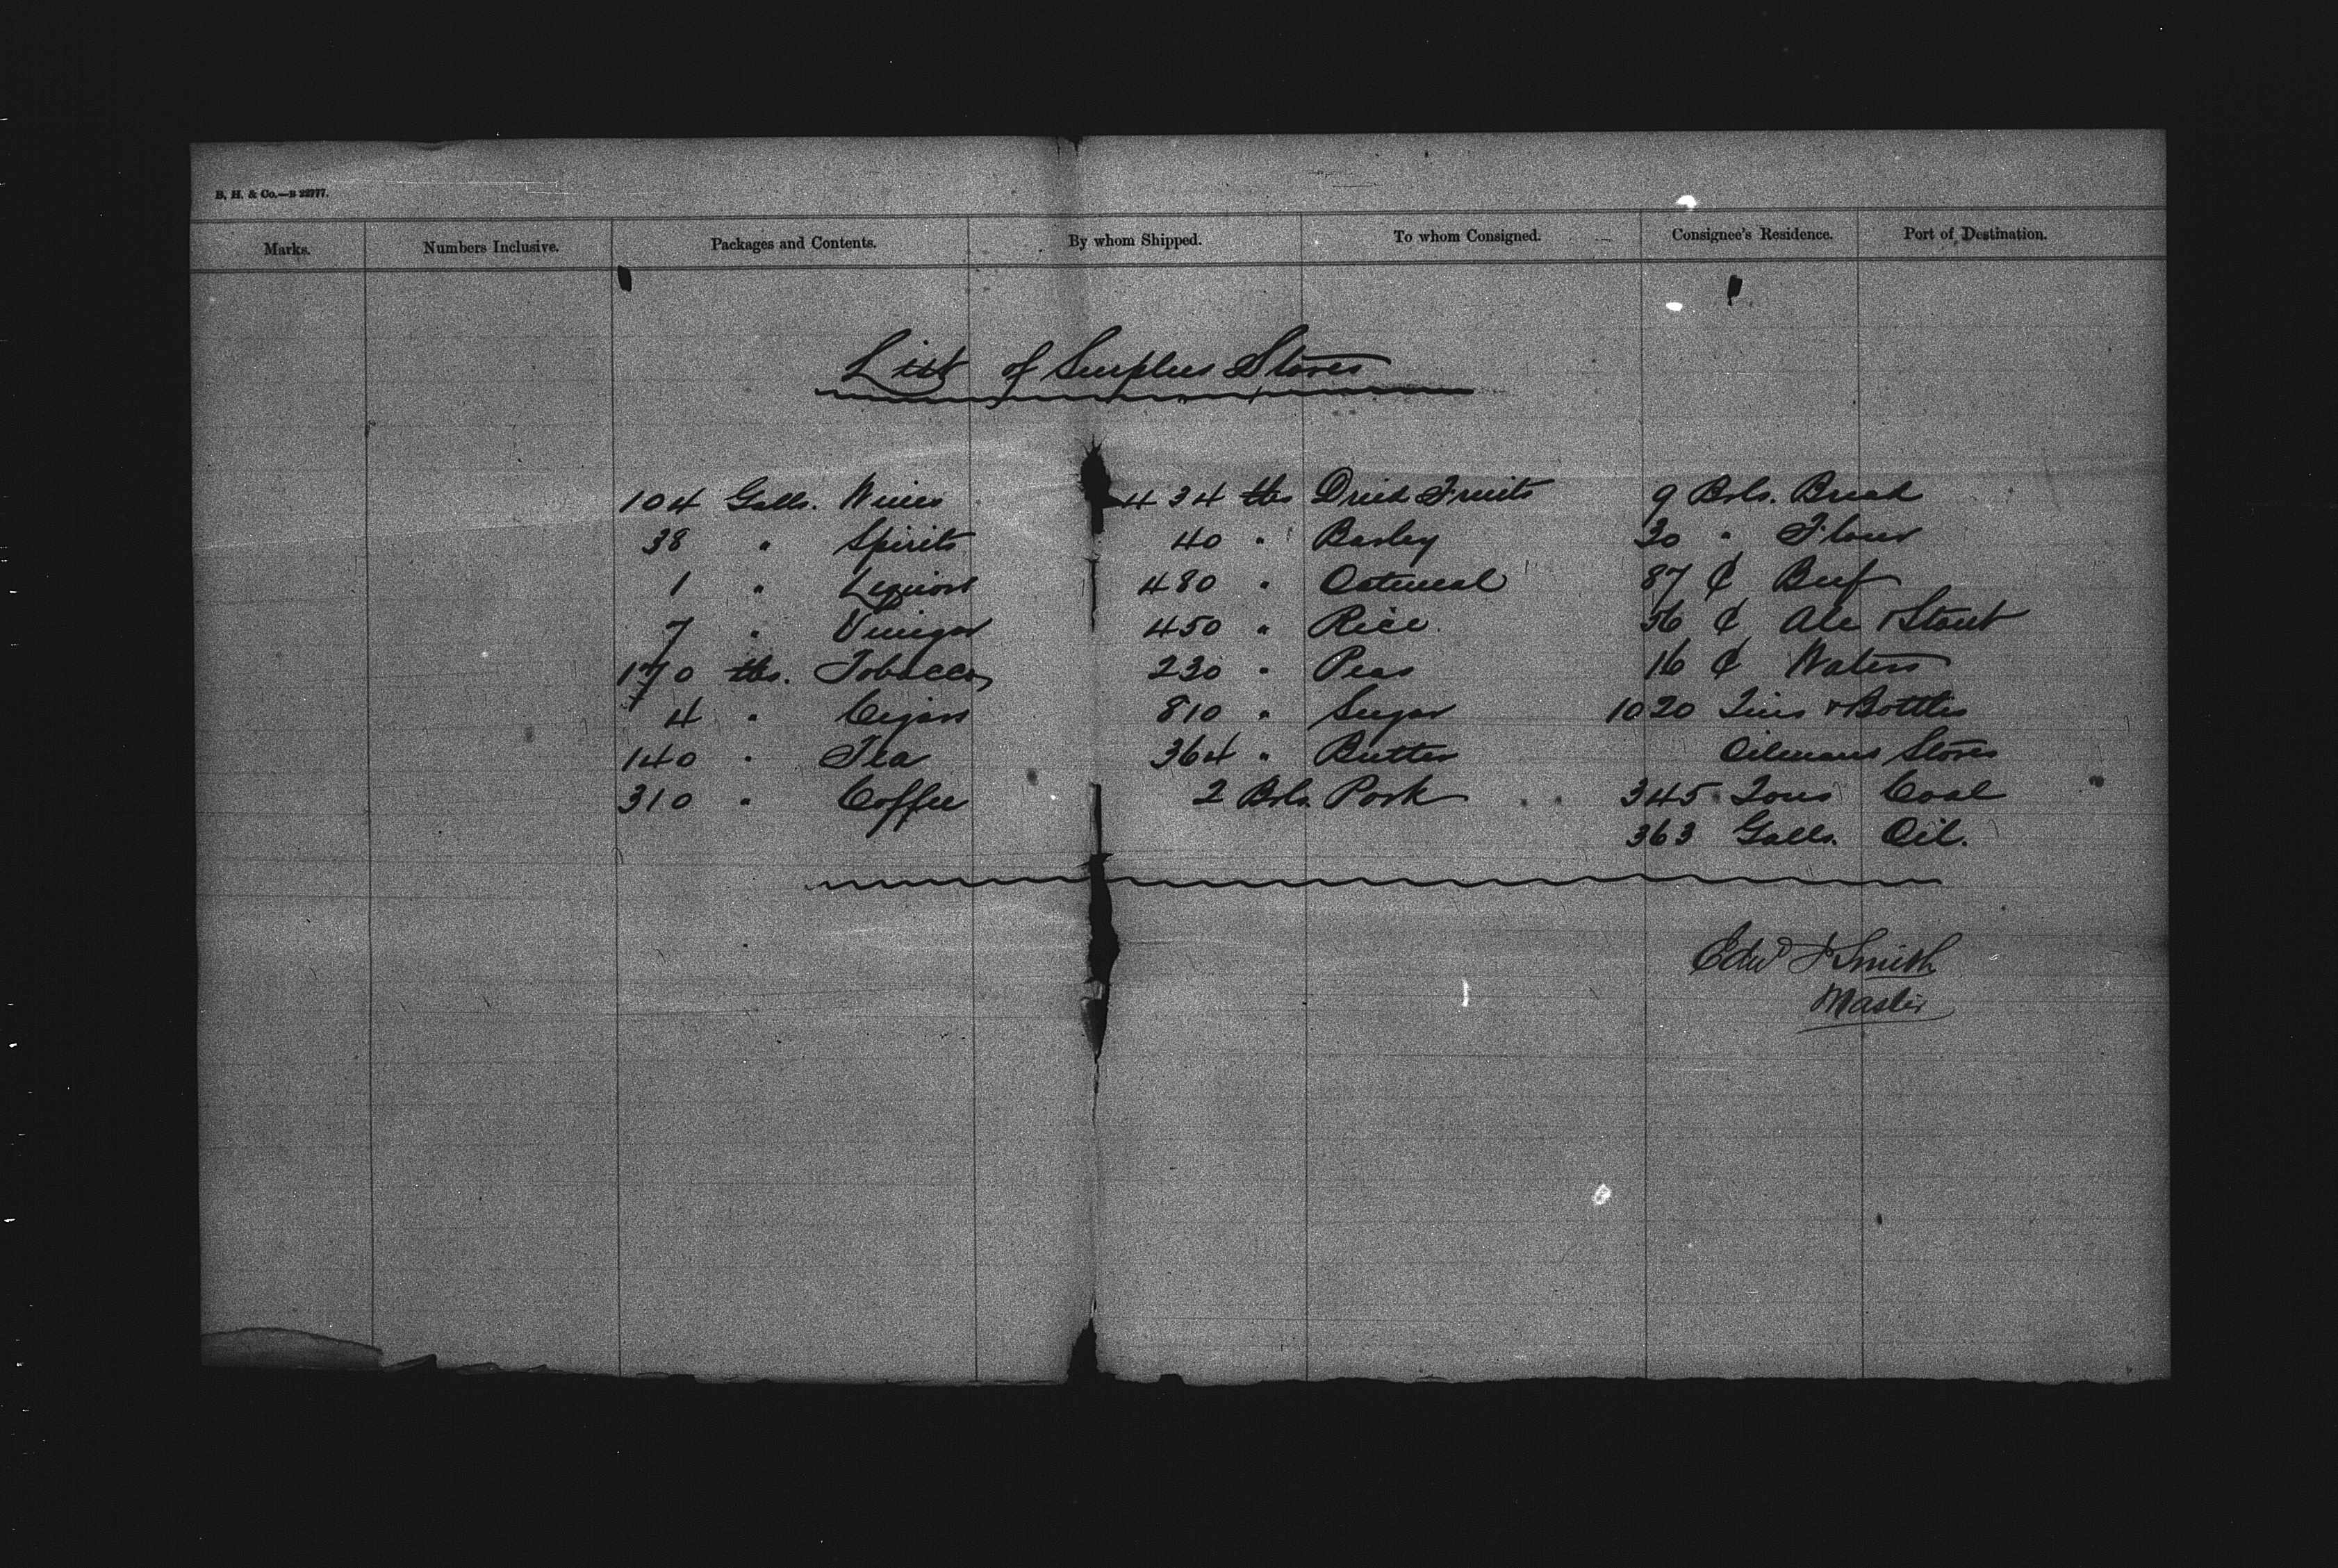 B, H. & Co.—B 22777.
Marks. Numbers Inclusive. Packages and Contents. By whom Shipped. To whom Consigned. Consignee's Residence. Port of Destination.
List of Surplus Stores
104 Galls. Wines 434 lbs Dried Fruits 9 Brls. Bread
38 " Spirits 40 " Barley 30 " Flour
1 " Liquors 480 " Oatmeal 87 ₵ Beef
7 " Vinegar 450 " Rice 36 ₵ Ale & Stout
170 lbs. Tobacco 230 " Peas 16 ₵ Waters
4 " Cigars 810 " Sugar 1020 Tins & Bottles
140 " Tea 364 " Butter Oilmans Stores
310 " Coffee 2 Brls. Pork 345 Tons Coal
363 Galls. Oil.
Edwd J Smith
Master